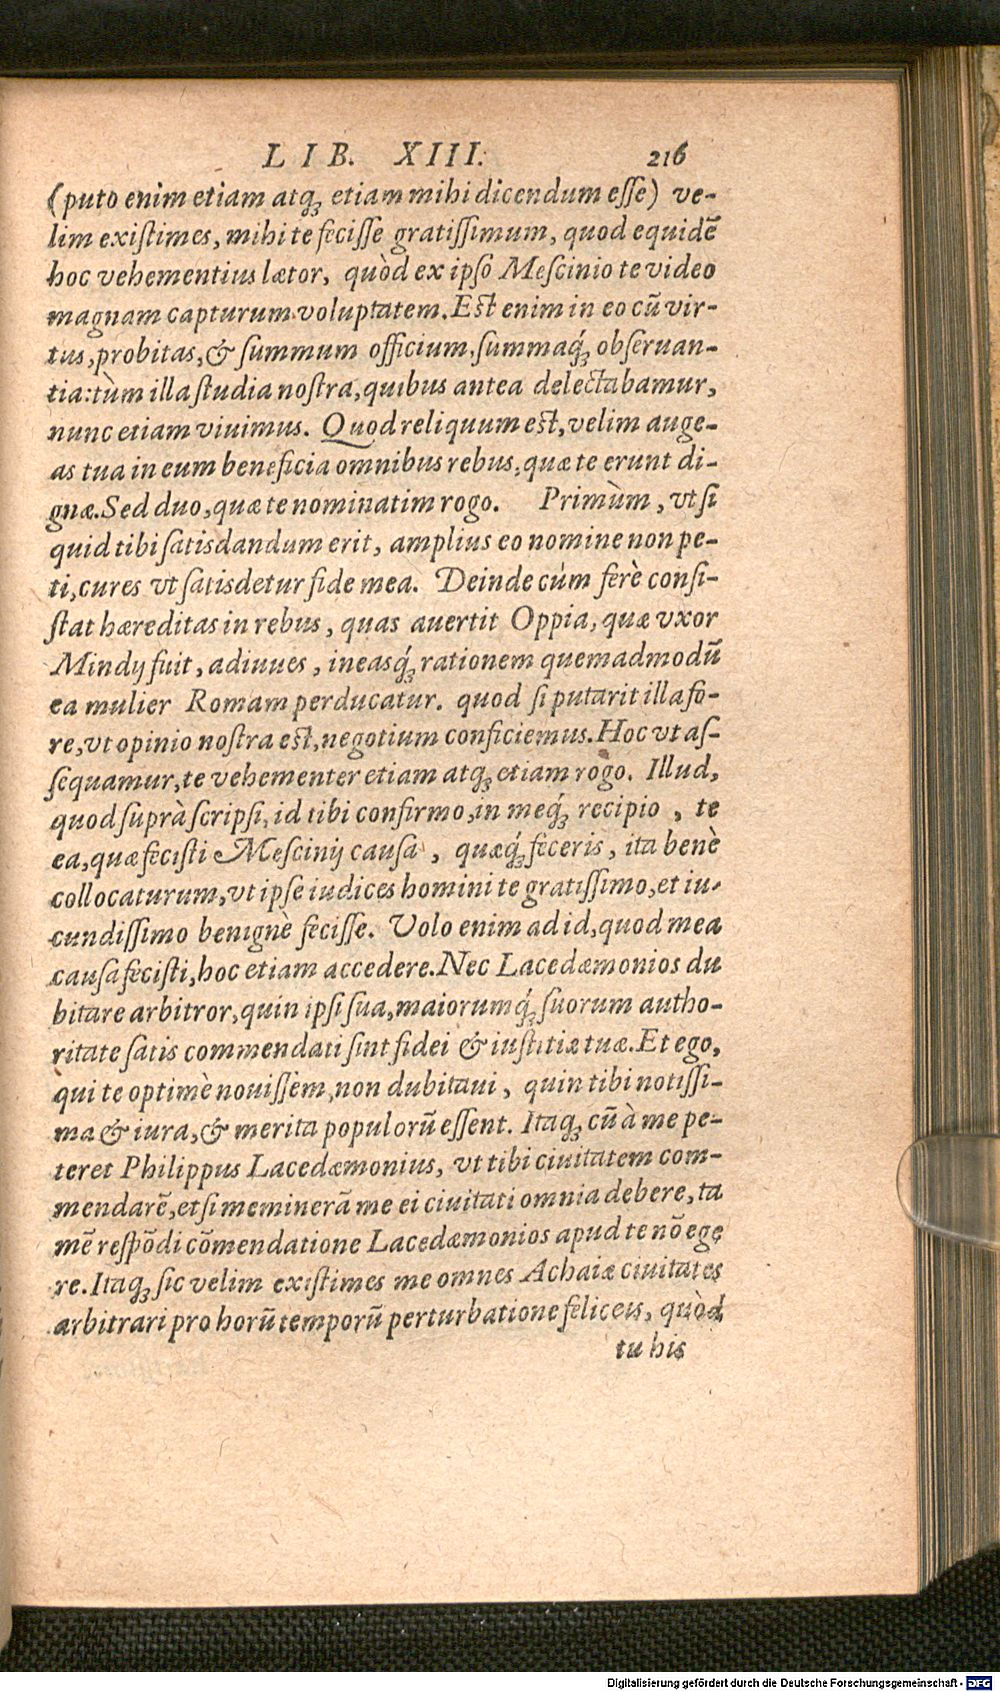 LIB. XIII. 216
(puto enim etiam atq; etiam mihi dicendum esse) ve-
lim existimes, mihi te fecisse gratissimum, quod equidẽ
hoc vehementius lætor, quòd ex ipso Mescinio te video
magnam capturum voluptatem. Est enim in eo cũ vir-
tus, probitas, & summum officium, summaq́; obseruan-
tia: tùm illa studia nostra, quibus antea delectabamur,
nunc etiam viuimus. Quod reliquum est, velim auge-
as tua in eum beneficia omnibus rebus, quæ te erunt di-
gnæ. Sed duo, quæ te nominatim rogo. Primùm, vt si
quid tibi satisdandum erit, amplius eo nomine non pe-
ti, cures vt satisdetur fide mea. Deinde cúm ferè consi-
stat hæreditas in rebus, quas auertit Oppia, quæ vxor
Mindij fuit, adiuues, ineasq́; rationem quemadmodũ
ea mulier Romam perducatur. quod si putarit illa fo-
re, vt opinio nostra est, negotium conficiemus. Hoc vt as-
sequamur, te vehementer etiam atq; etiam rogo. Illud,
quod suprà scripsi, id tibi confirmo, in meq́; recipio, te
ea, quæ fecisti Mescinij causa, quæq́; feceris, ita benè
collocaturum, vt ipse iudices homini te gratissimo, et iu-
cundissimo benignè fecisse. Volo enim ad id, quod mea
causa fecisti, hoc etiam accedere. Nec Lacedæmonios du
bitare arbitror, quin ipsi sua, maiorumq́; suorum autho-
ritate satis commendati sint fidei & iustitiæ tuæ. Et ego,
qui te optimè nouissem, non dubitaui, quin tibi notissi-
ma & iura, & merita populorũ essent. Itaq; cũ à me pe-
teret Philippus Lacedæmonius, vt tibi ciuitatem com-
mendarẽ, etsi meminerã me ei ciuitati omnia debere, ta
mẽ respõdi cõmendatione Lacedæmonios apud te nõ ege
re. Itaq; sic velim existimes me omnes Achaiæ ciuitates
arbitrari pro horũ temporũ perturbatione feliceis, quòd
tu his
Digitalisierung gefördert durch die Deutsche Forschungsgemeinschaft - DFG